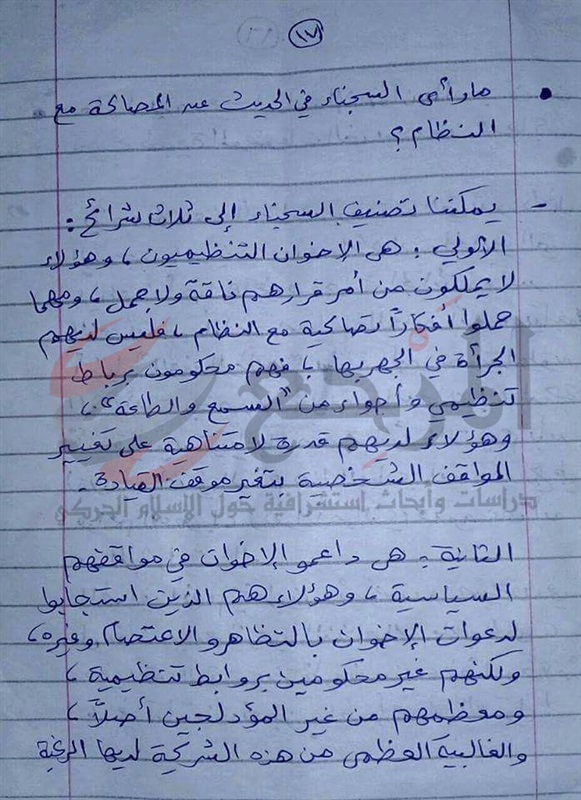 ١٧
• ما رأى السجناء في الحديث عن المصالحة مع
النظام ؟
- يمكننا تصنيف السجناء إلى ثلاث شرائح :
الأولى : هى الإخوان التنظيميون ، وهؤلاء
لا يملكون من أمر قرارهم ناقة ولا جمل ، ومهما
حملوا أفكاراً تصالحية مع النظام ، فليس لديهم
الجرأة في الجهر بها ، فهم محكومون برباط
تنظيمى وأجواء من "السمع والطاعة" ،
وهؤلاء لديهم قدرة لا متناهية على تغيير
المواقف الشخصية بتغير موقف القيادة .
المرجع
دراسات وأبحاث استشرافية حول الإسلام الحركي
الثانية : هى داعمو الإخوان في مواقفهم
السياسية ، وهؤلاء هم الذين استجابوا
لدعوات الإخوان بالتظاهر والاعتصام وغيره ،
ولكنهم غير محكومين بروابط تنظيمية ،
ومعظمهم من غير المؤدلجين أصلاً ،
والغالبية العظمى من هذه الشريحة لديها الرغبة